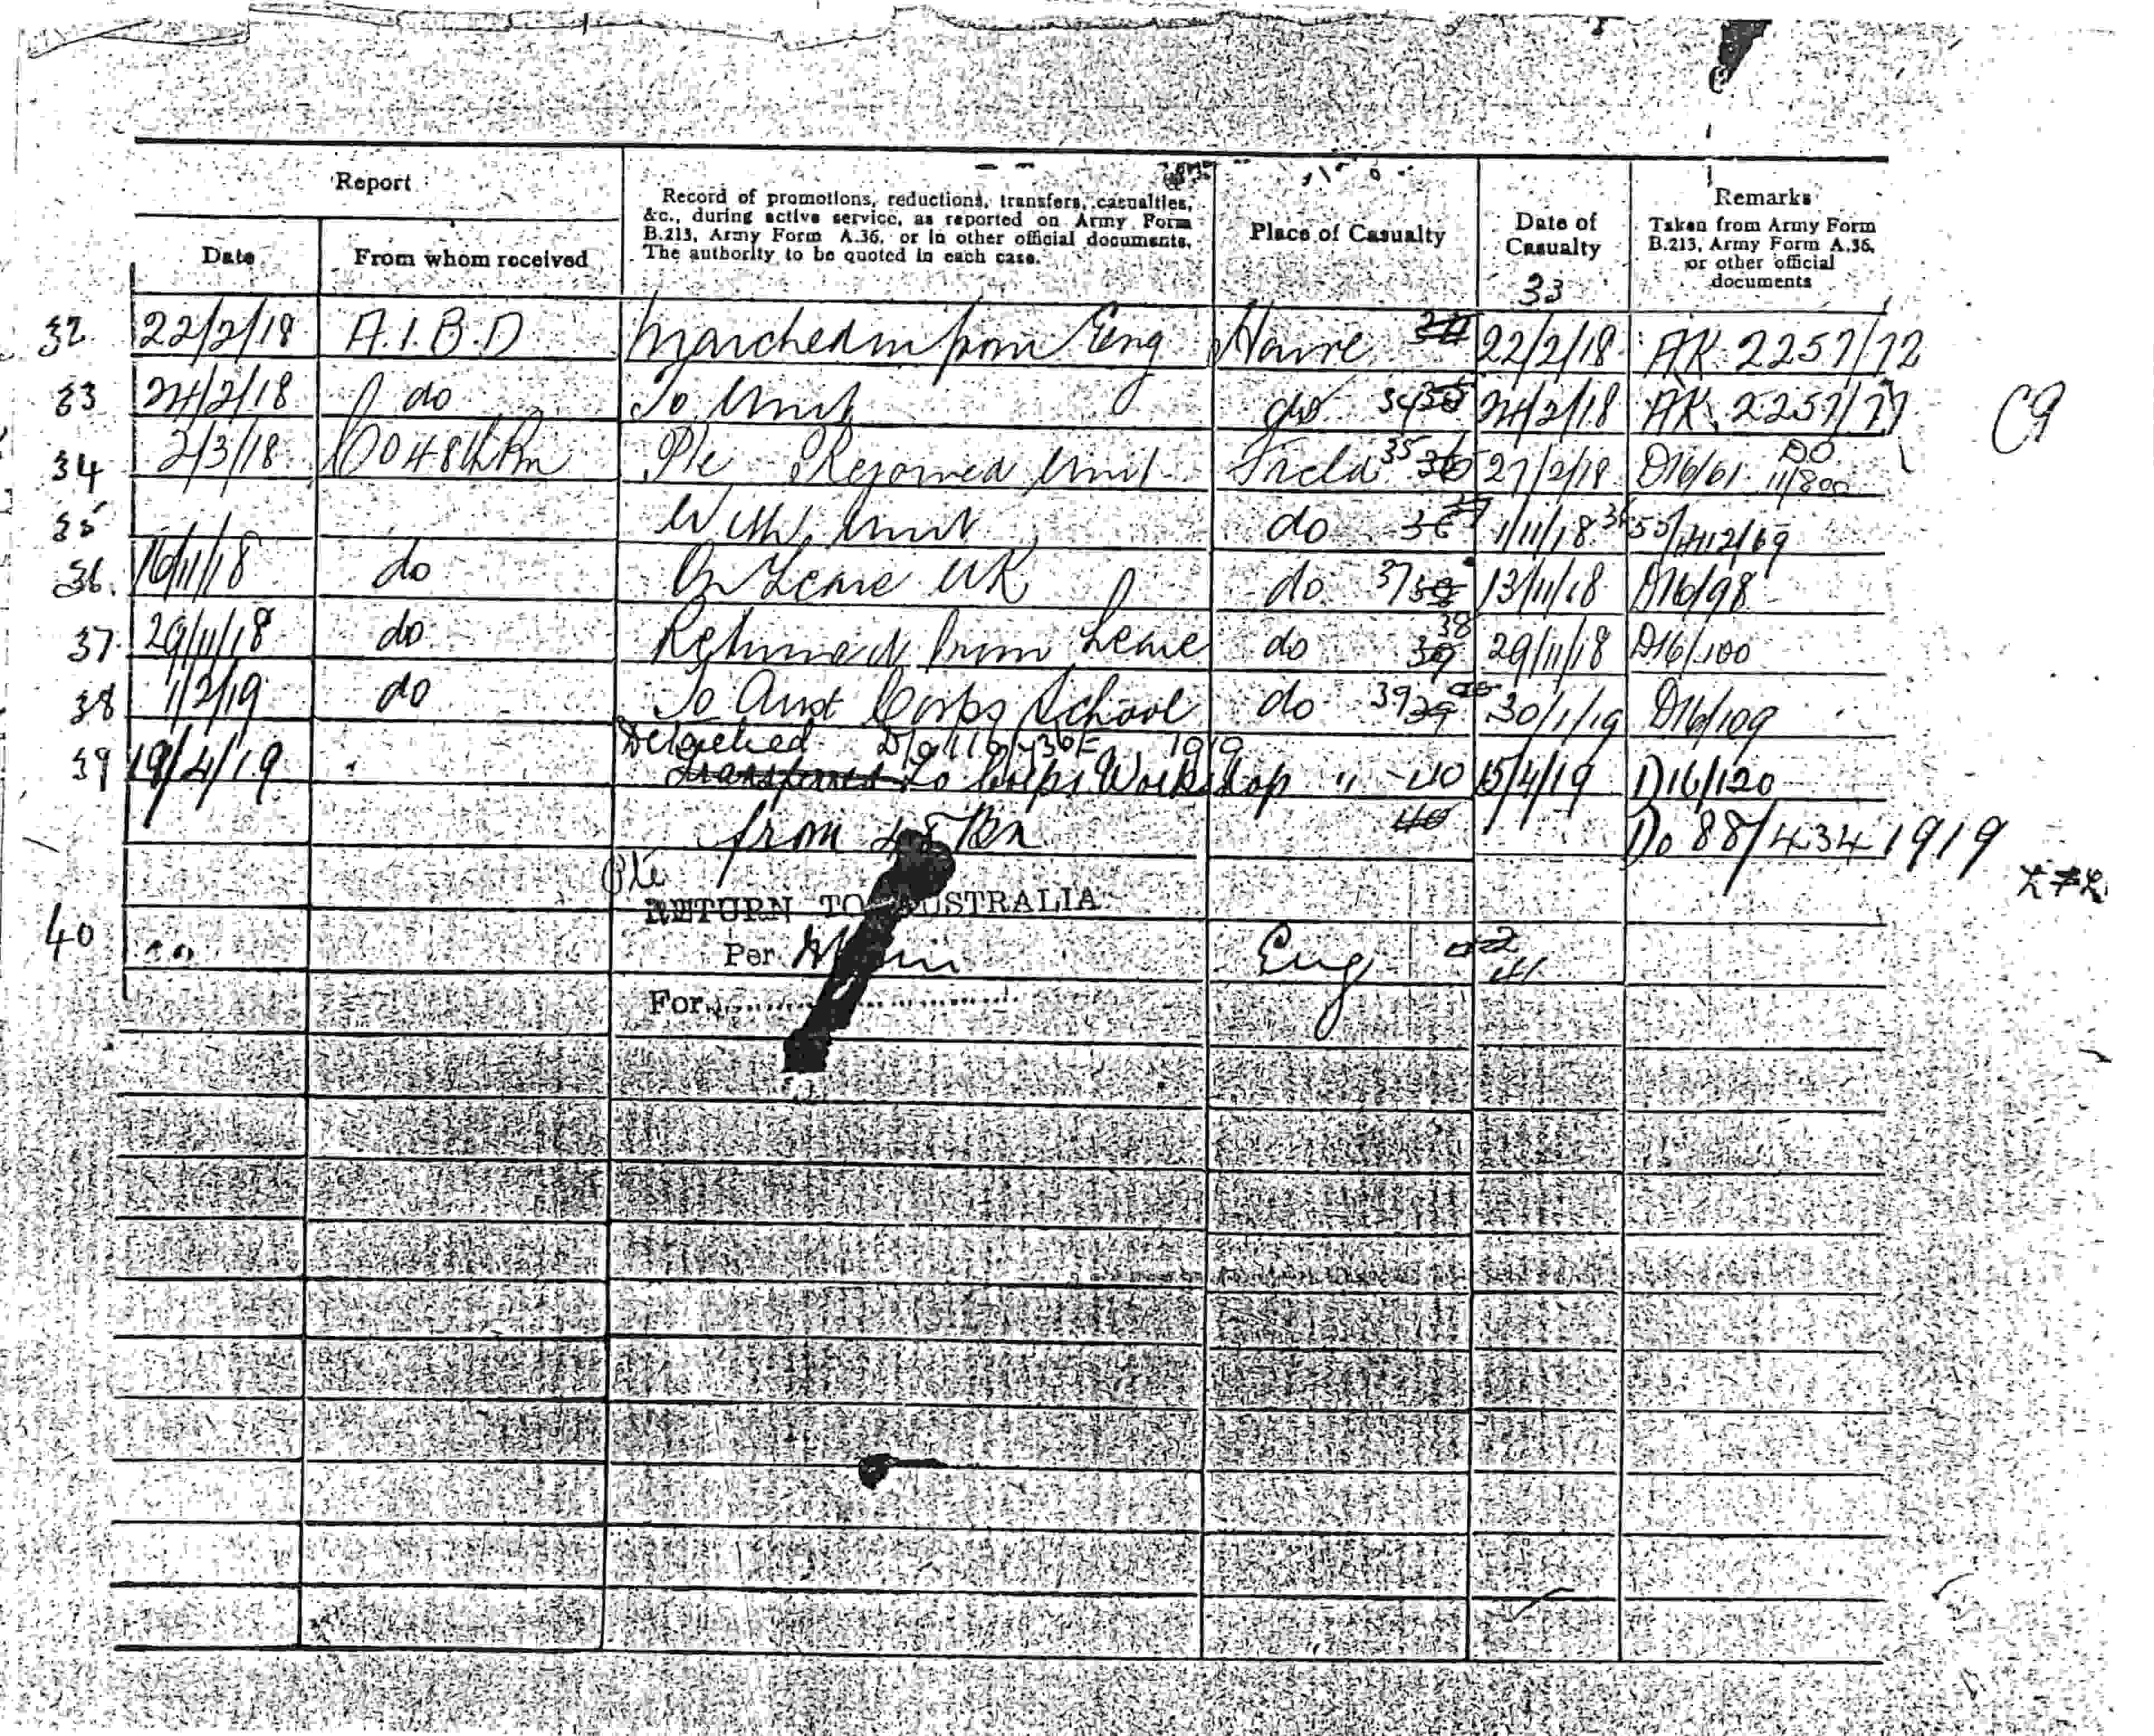 Report
Record of promotions, reductions, transfers, casualties,
&c., during active service, as reported on Army Form
B.213, Army Form A.36, or in other official documents.
The authority to be quoted in each case.
Place of Casualty
Date of
Casualty
Remarks
Taken from Army Form
B.213, Army Form A.36,
or other official
documents
Date
From whom received
33
32 22/2/18 A.I.B.D Marched in from Eng Havre 22/2/18 AK 2257/72
33 24/2/18 do To Unit do 34 24/2/18 AK 2257/77
C9
34 2/3/18 CO 48th Bn Pte Rejoined Unit Field 35 27/2/18 D16/61 DO
35 With Unit do 1/11/18
36. 16/11/18 do On Leave UK do 37 13/11/18 D16/98
37. 29/11/18 do Returned from Leave do 38 29/11/18 D16/100
38 1/2/19 do To Aust Corps School do 39 30/1/19 D16/109
Detached 1919
39 19/4/19 Transferred to Corps Workshop " 40 15/4/19 D16/120
from 48 Bn Do 88/434 1919
Pte
RETURN TO AUSTRALIA
40 Per Eng 41
For